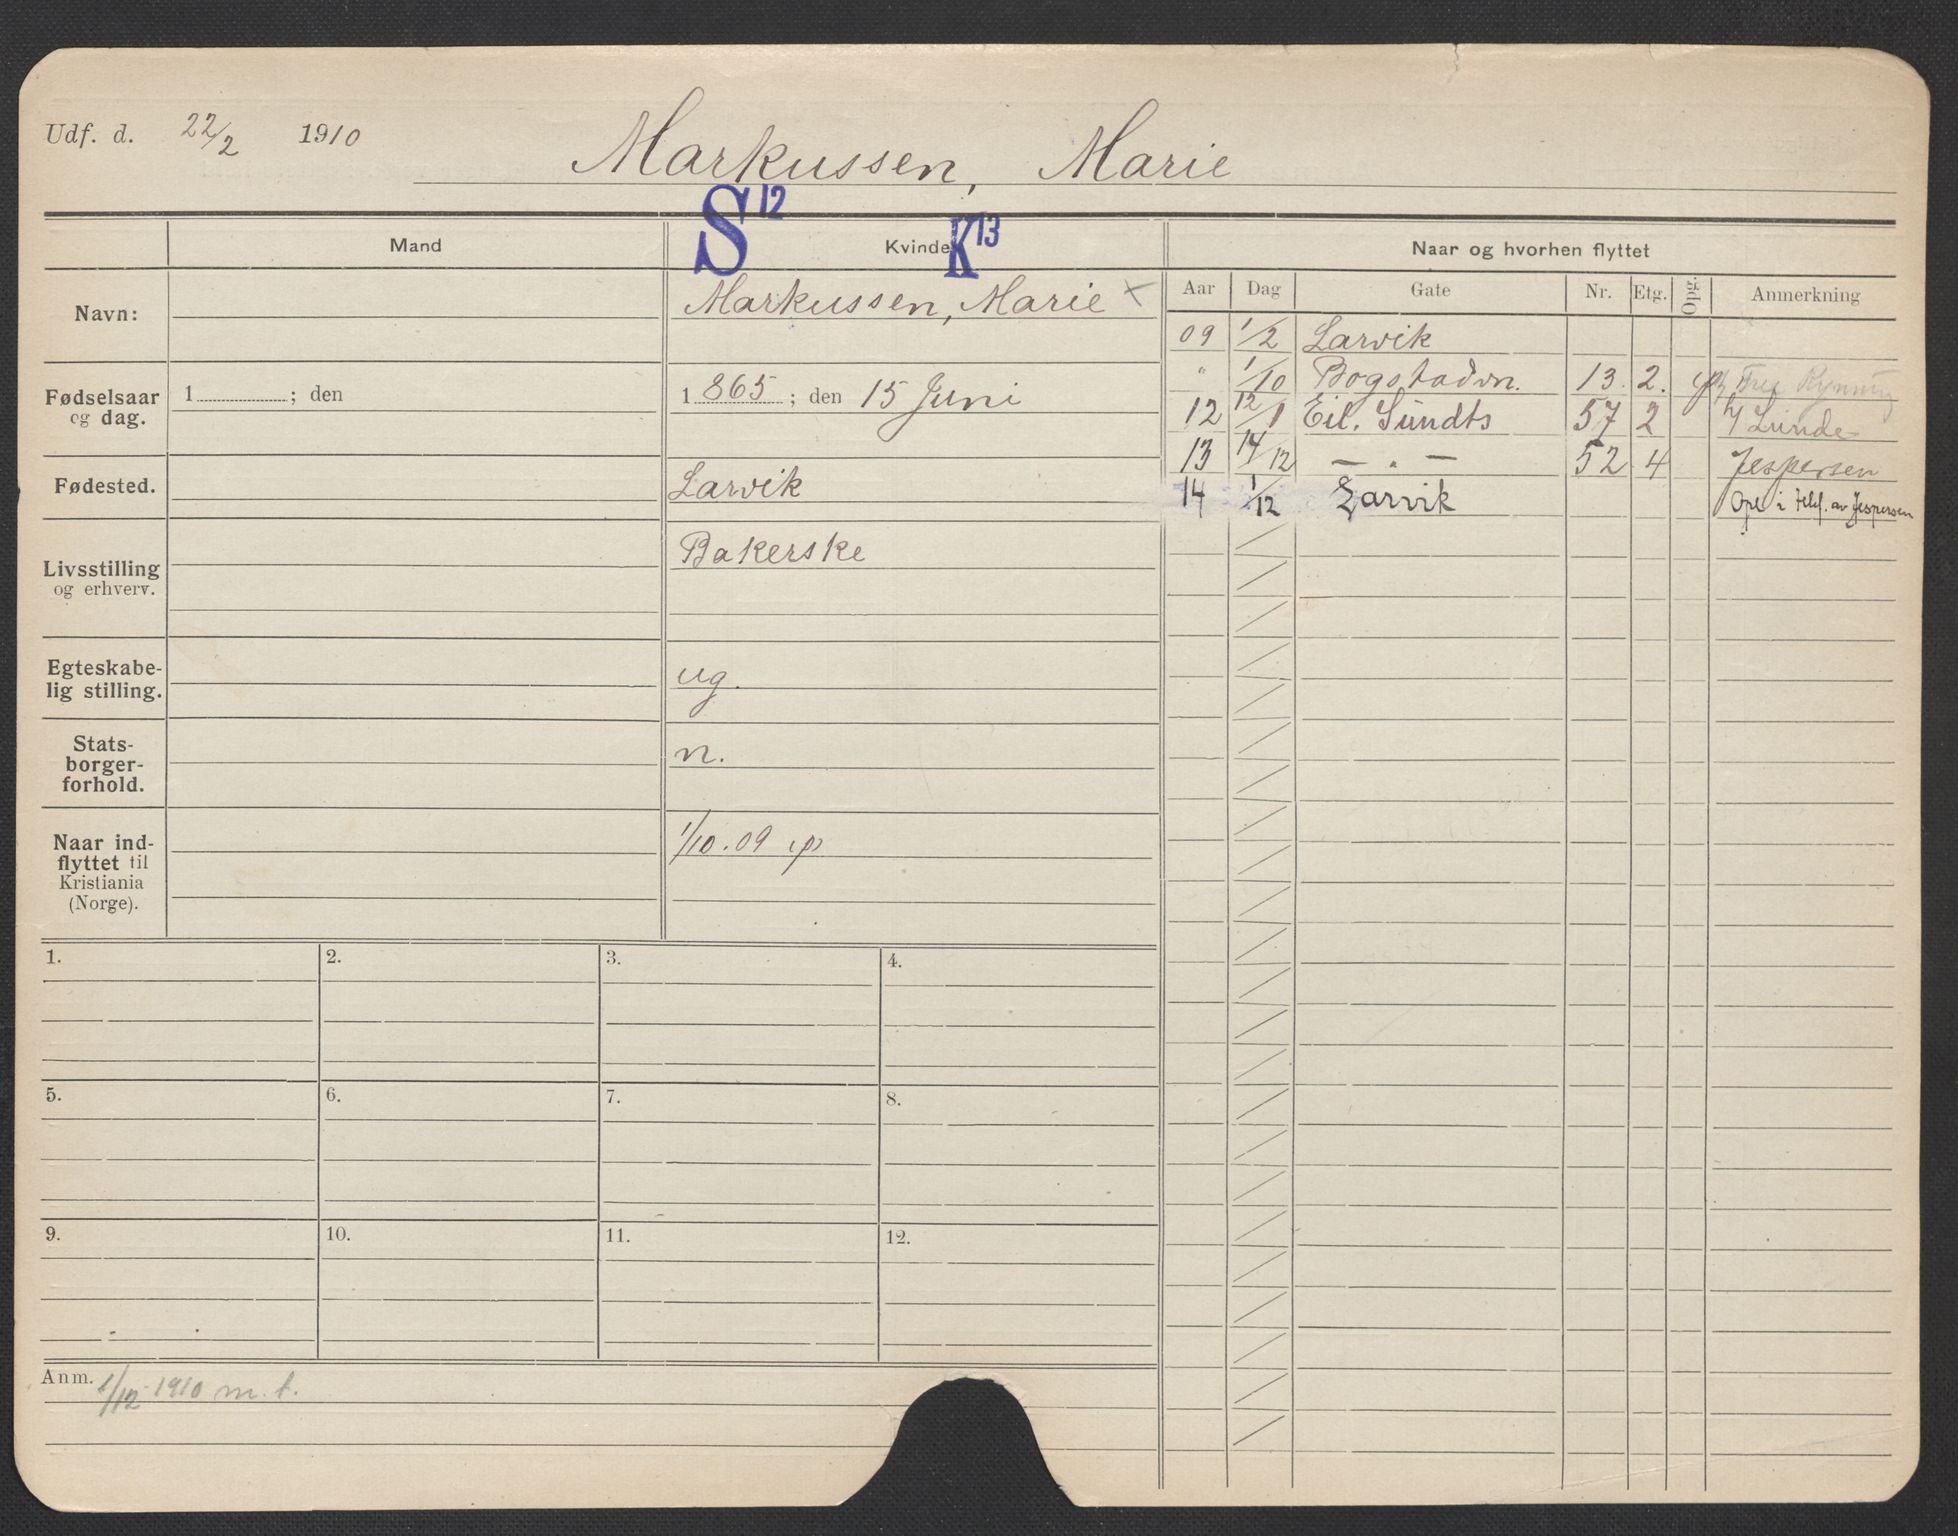 Udf. d. 22/2 1910
Markussen, Marie
S 12
K 13
Mand
Kvinde
Naar og hvorhen flyttet
Navn:
Markussen, Marie ×
Aar Dag Gate Nr. Etg. Opg. Anmerkning
09 1/2 Larvik
" 1/10 Bogstadvn. 13. 2.
12 12/1 Eil. Sundts 57 2 Lunde
13 14/12 — " — 52 4 Jespersen
14 1/12 Larvik Opl i telef. av Jespersen
Fødselsaar og dag.
1 ; den
1 865 ; den 15 Juni
Fødested.
Larvik
Livsstilling og erhverv.
Bakerske
Egteskabe-
lig stilling.
ug.
Stats-
borger-
forhold.
n.
Naar ind-
flyttet til
Kristiania
(Norge).
1/10. 09
1.
2.
3.
4.
5.
6.
7.
8.
9.
10.
11.
12.
Anm. 1/12 1910 m. t.